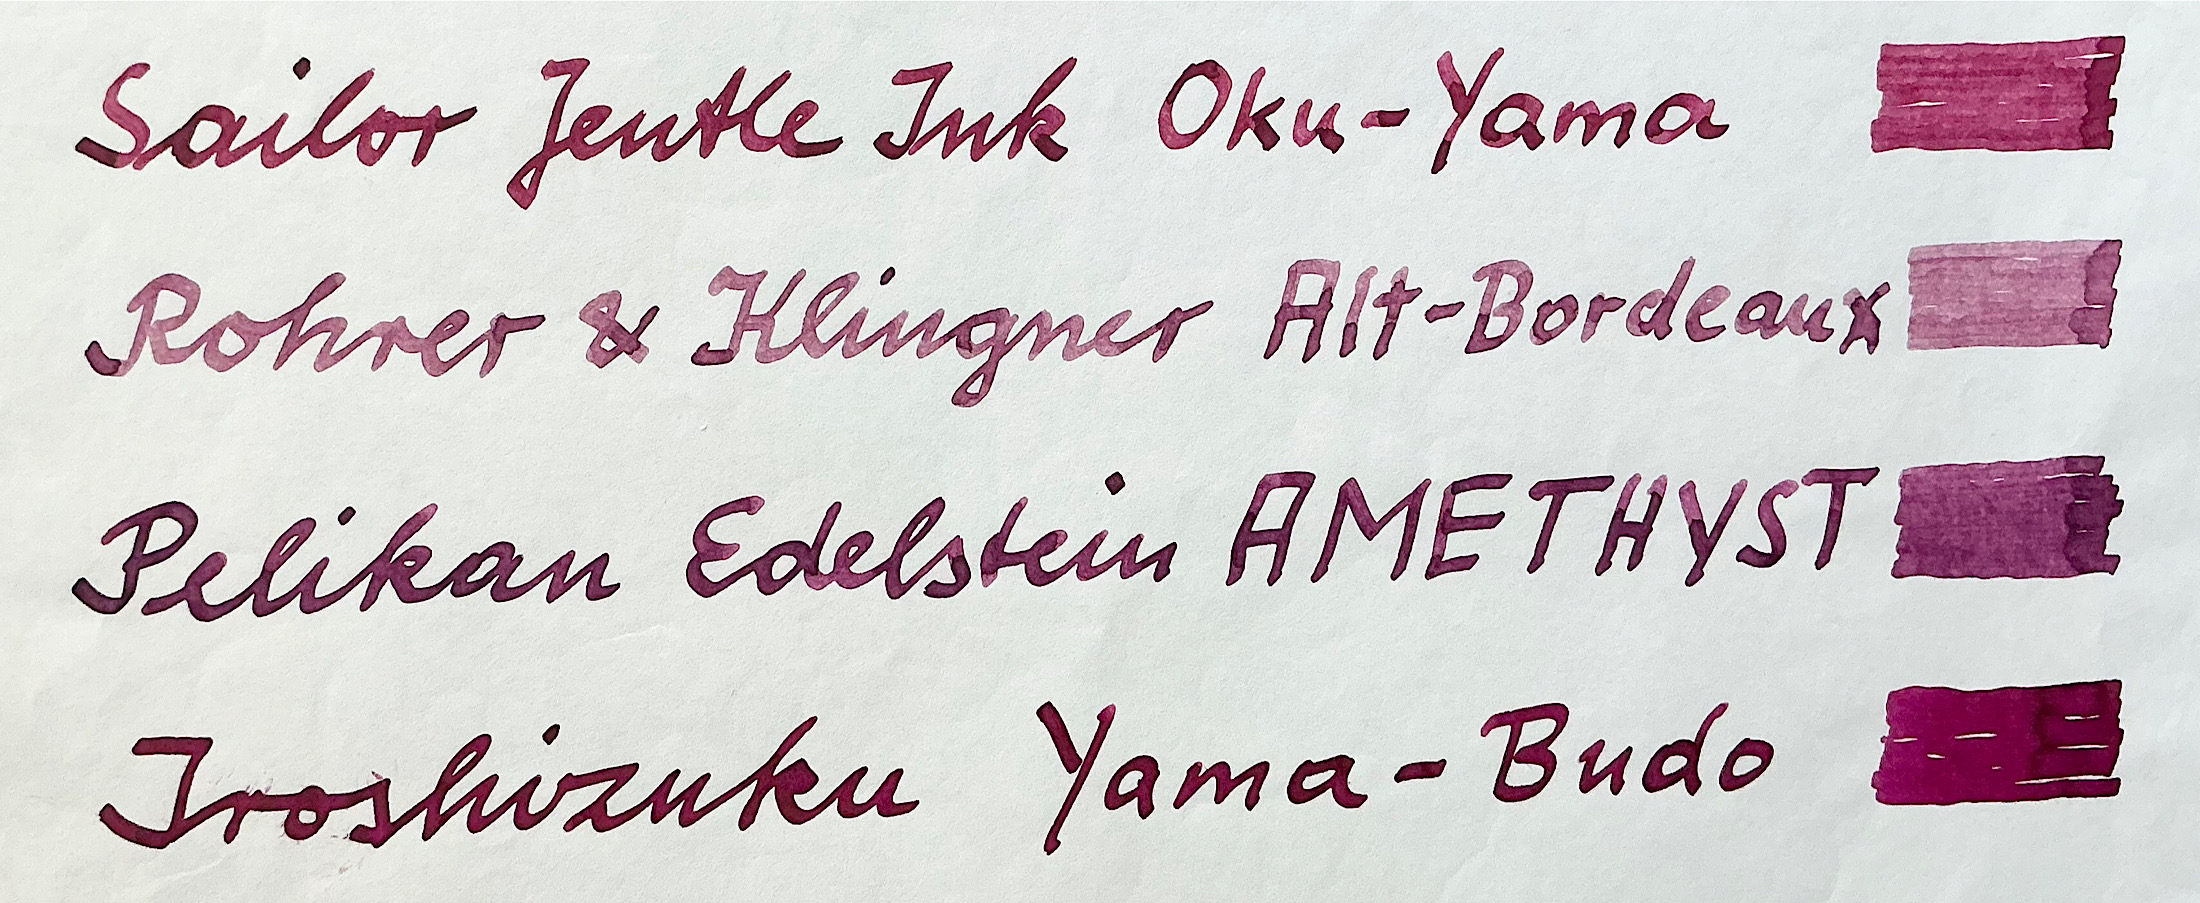 Sailor Jentle Ink Oku-Yama
Rohrer & Klingner Alt-Bordeaux
Pelikan Edelstein AMETHYST
Iroshizuku Yama-Budo